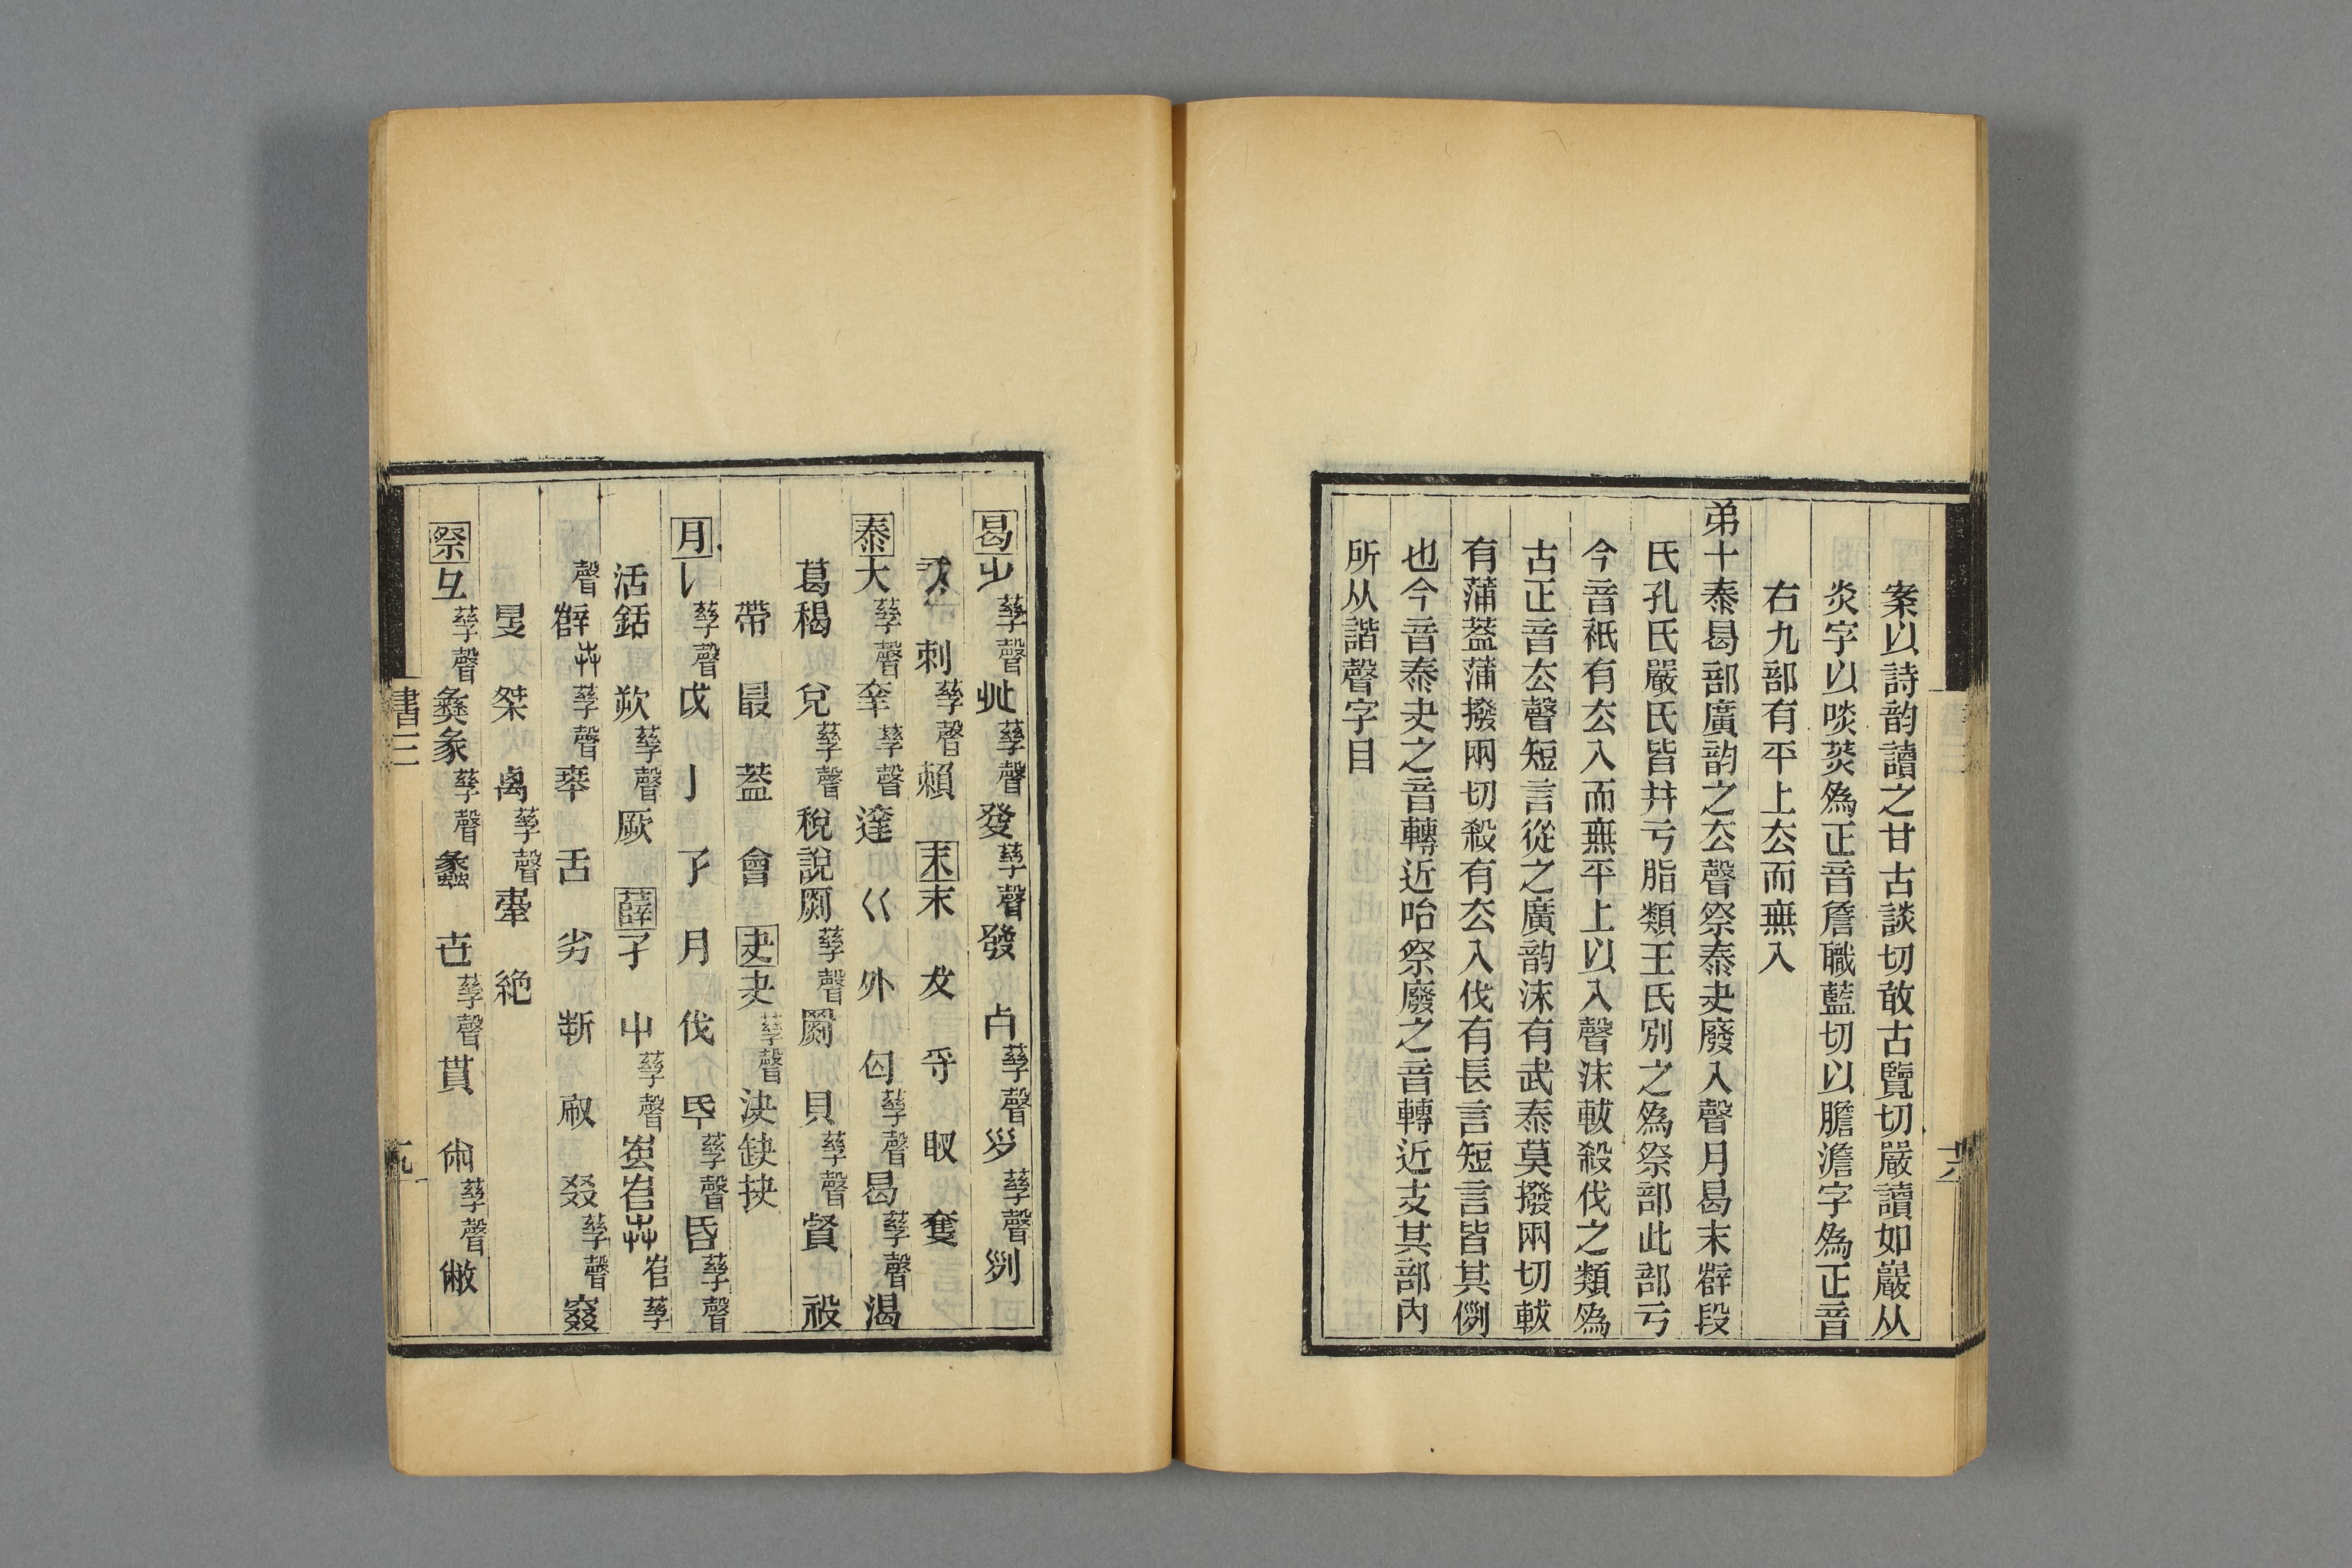 案以詩韵讀之甘古談切敢古覽切嚴讀如巖从
炎字以啖菼爲正音詹職藍切以膽澹字爲正音
右九部有平上厺而無入
弟十泰曷部廣韵之厺聲祭泰夬廢入聲月曷末辥段
氏孔氏嚴氏皆幷亏脂類王氏別之爲祭部此部亏
今音祇有厺入而無平上以入聲沬軷殺伐之類爲
古正音厺聲短言從之廣韵沬有武泰莫撥兩切軷
有蒲葢蒲撥兩切殺有厺入伐有長言短言皆其例
也今音泰夬之音轉近咍祭廢之音轉近支其部內
所从諧聲字目
曷 㞢孳聲 癶孳聲 發孳聲 發 歺孳聲 孳聲 列
刺孳聲 賴 末 末 犮 寽 㕞 奪
泰 大孳聲 羍孳聲 達 巜 外 匃孳聲 曷孳聲 渴
葛 褐 兌孳聲 稅 說 𠛬孳聲 罽 貝孳聲 䝿 祋
帶 最 葢 會 夬 夬孳聲 決 缺 抉
月 𠄌孳聲 戉 亅 孑 月 伐 氒孳聲 昏孳聲
活 銛 欮孳聲 厥 薛 孑 屮孳聲 㞢 㞷 㞷孳
聲 辥 丯孳聲 舝 舌 劣 㫁 㕞 叕孳聲 窡
𥄎 桀 离孳聲 舝 絕
祭 彑孳聲 彝 彖孳聲 蠡 世孳聲 貰 㡀孳聲 敝
書三